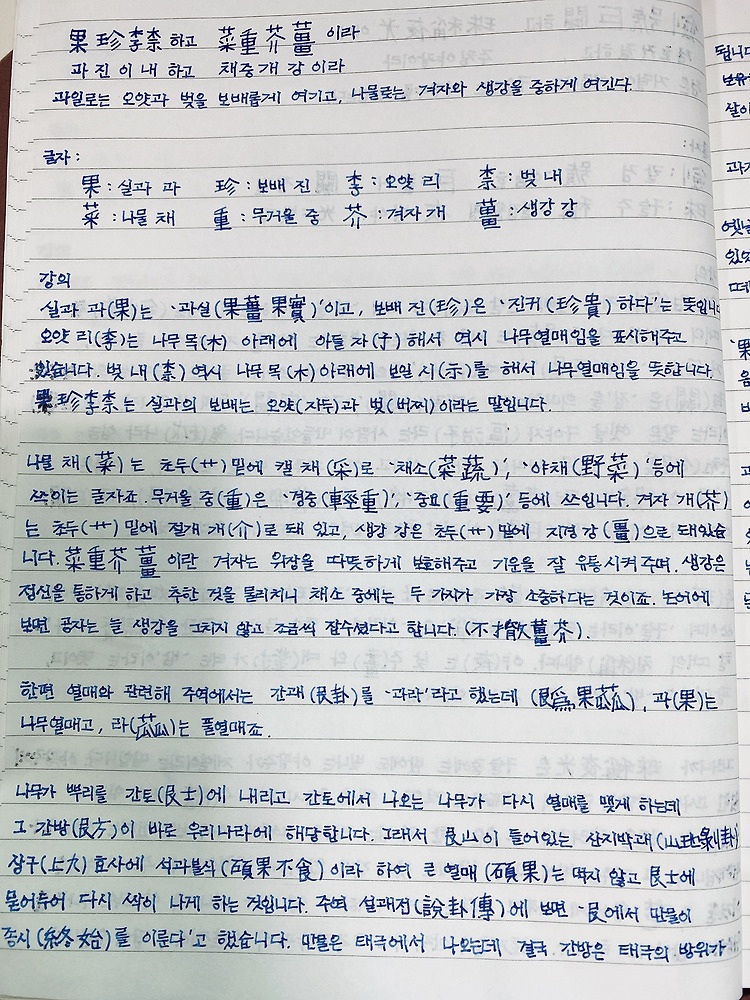 果珍李柰 하고 菜重芥薑 이라
과진이내 하고 채중개강이라
과일로는 오얏과 벚을 보배롭게 여기고, 나물로는 겨자와 생강을 중하게 여긴다.
글자 :
果 : 실과 과 珍 : 보배 진 李 : 오얏 리 柰 : 벚 내
菜 : 나물 채 重 : 무거울 중 芥 : 겨자 개 薑 : 생강 강
강의
실과 과(果)는 '과실(果實)'이고, 보배 진(珍)은 '진귀(珍貴)하다'는 뜻입니
오얏 리(李)는 나무 목(木) 아래에 아들 자(子) 해서 역시 나무열매임을 표시해주고
있습니다. 벚 내(柰) 역시 나무 목(木)아래에 보일 시(示)를 해서 나무열매임을 뜻합니다.
果珍李柰는 실과의 보배는 오얏(자두)과 벚(버찌)이라는 말입니다.
나물 채(菜)는 초두(艹) 밑에 캘 채(采)로 '채소(菜蔬)', '야채(野菜)' 등에
쓰이는 글자죠. 무거울 중(重)은 '경중(輕重)', '중요(重要)' 등에 쓰입니다. 겨자 개(芥)
는 초두(艹) 밑에 절개 개(介)로 돼 있고, 생강 강은 초두(艹) 밑에 지경 강(畺)으로 돼있습
니다. 菜重芥薑 이란 겨자는 위장을 따뜻하게 보호해주고 기운을 잘 유통시켜주며, 생강은
정신을 통하게 하고 추한 것을 물리치니 채소 중에는 두 가지가 가장 소중하다는 것이죠. 논어에
보면 공자는 늘 생강을 그치지 않고 조금씩 잡수셨다고 합니다. (不撤薑芥).
한편 열매와 관련해 주역에서는 간괘(艮卦)를 '과라'라고 했는데 (艮爲果蓏), 과(果)는
나무열매고, 라(蓏)는 풀열매죠.
나무가 뿌리를 간토(艮土)에 내리고 간토에서 나오는 나무가 다시 열매를 맺게 하는데
그 간방(艮方)이 바로 우리나라에 해당합니다. 그래서 艮山이 들어있는 산지박괘(山地剝卦)
상구(上九) 효사에 석과불식(碩果不食)이라 하여 큰 열매(碩果)는 먹지 않고 艮土에
묻어두어 다시 싹이 나게 하는 것입니다. 주역 설괘전(說卦傳)에 보면 '艮에서 만물이
종시(終始)를 이룬다'고 했습니다. 만물은 태극에서 나오는데 결국 간방은 태극의 방위가
됩니다
보유
살이
과거
옛날
있었
떼